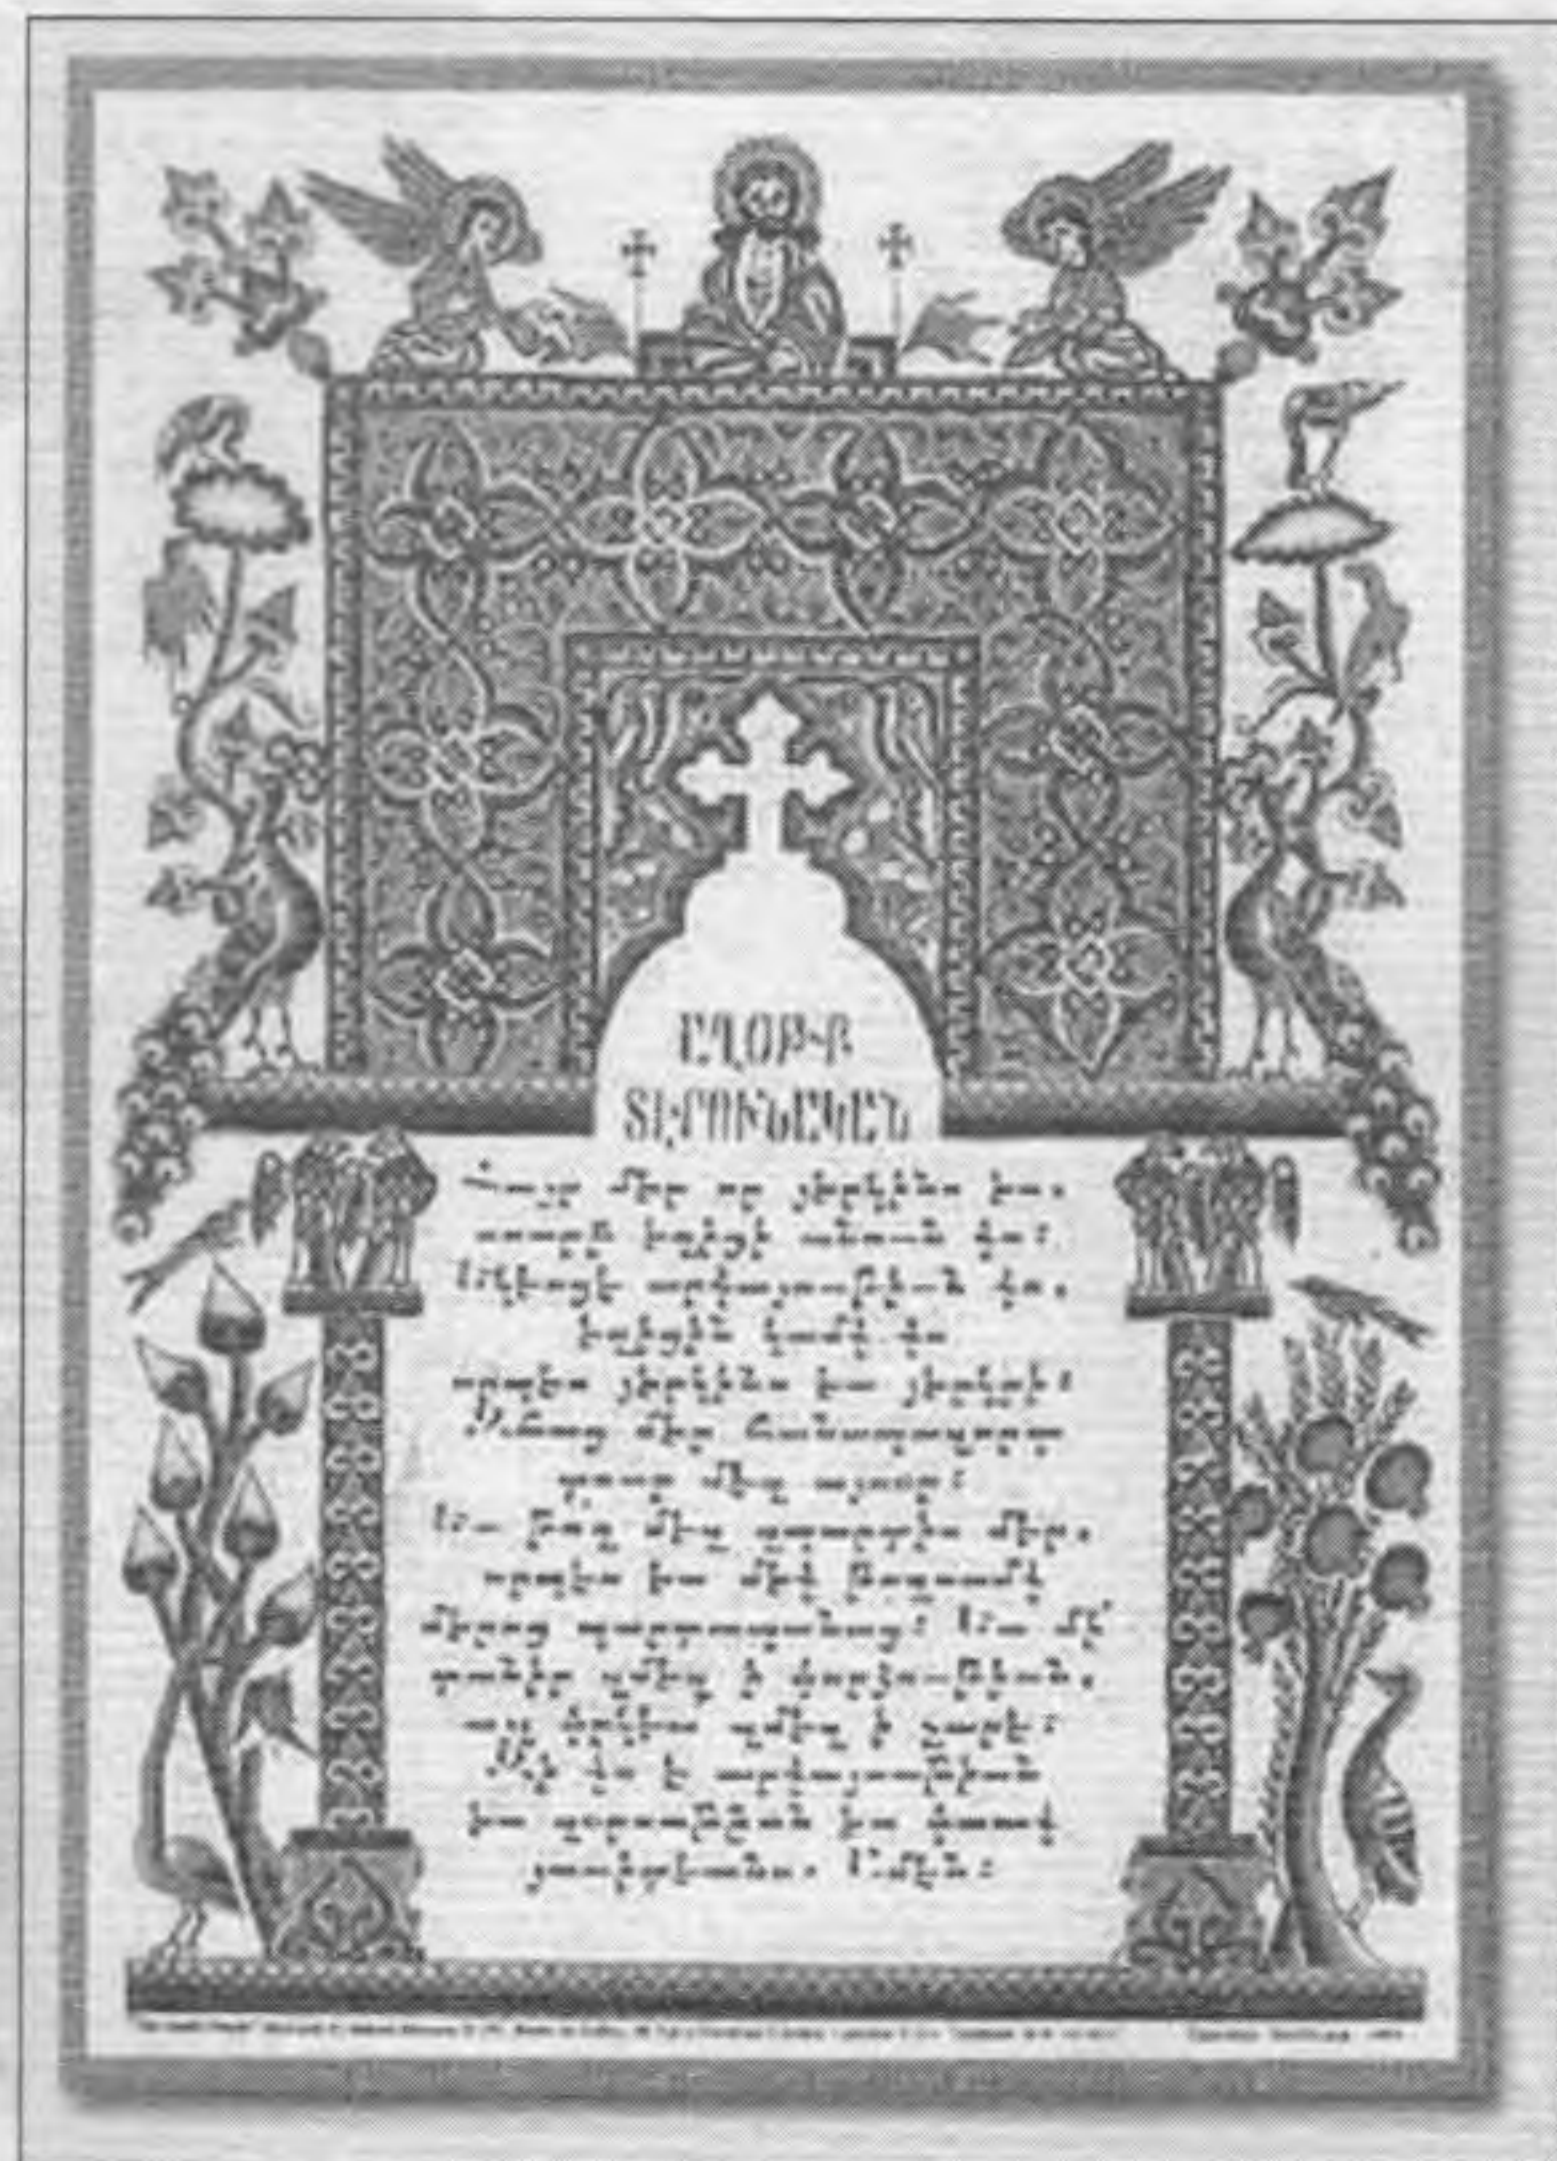 ԱՂՕԹՔ
ՏԷՐՈՒՆԱԿԱՆ
Հայր մեր որ յերկինս ես.
սուրբ եղիցի անուն քո։
Եկեսցէ արքայութիւն քո.
եղիցին կամք քո
որպէս յերկինս եւ յերկրի։
Զհաց մեր հանապազորդ
տուր մեզ այսօր։
Եւ թող մեզ զպարտիս մեր.
որպէս եւ մեք թողումք
մերոց պարտապանաց։ Եւ մի՛
տանիր զմեզ ի փորձութիւն.
այլ փրկեա զմեզ ի չարէ։
Զի քո է արքայութիւն
եւ զօրութիւն եւ փառք
յաւիտեանս. Ամէն։